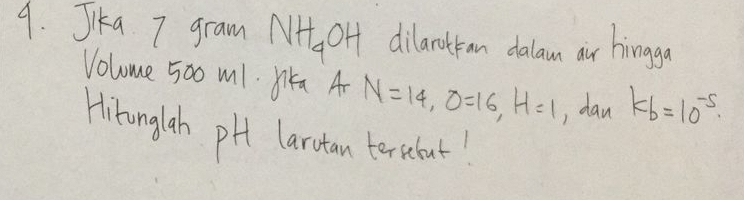 4. Jika 7 gram NH₄OH dilarutkan dalam air hingga
Volume 500 ml. jika Ar N=14, O=16, H=1, dan kb=10⁻⁵.
Hitunglah pH larutan tersebut!